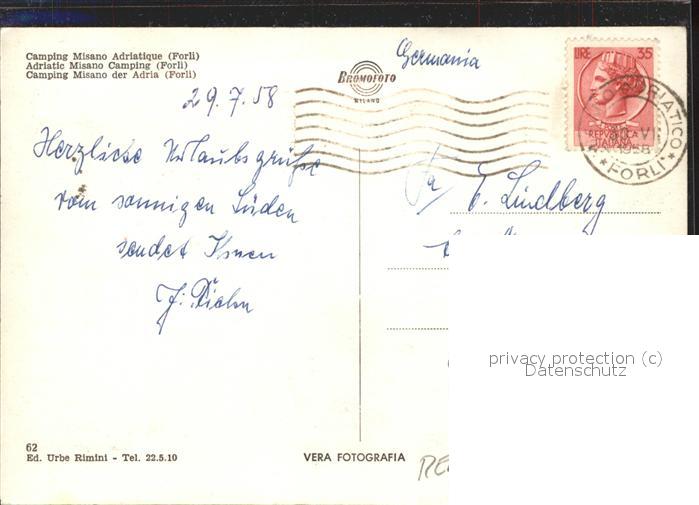 Camping Misano Adriatique (Forli)
Adriatic Misano Camping (Forli)
Camping Misano der Adria (Forli)
BROMOFOTO
MILANO
Germania
LIRE 35
REPVBBLICA
ITALIANA
ADRIATICO
1958
* FORLI' *
29.7.58
Herzliche Urlaubsgrüße
vom sonnigen Süden
sendet Ihnen
Fa/ E. Lindberg
privacy protection (c)
Datenschutz
62
Ed. Urbe Rimini - Tel. 22.5.10
VERA FOTOGRAFIA